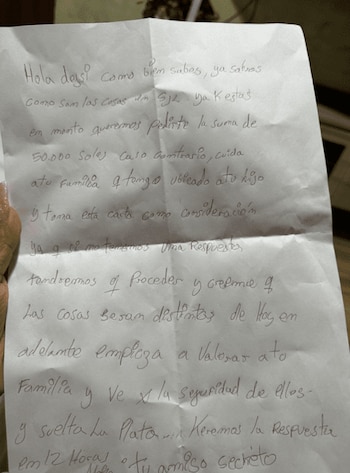 Hola dogsi como bien sabes, ya sabras
como son las cosas ya Kestas
en manto queremos pedirte la suma de
50.000 soles caso contrario, cuida
a tu familia q tengo ubicado a tu hijo
y toma esta carta como consideración
ya q si no tenemos una Respuesta
tendremos q Proceder y creeme q
Las cosas seran distintas de Hoy en
adelante empieza a Valorar a tu
Familia y Ve x la seguridad de ellos-
y suelta La Plata... Keremos la Respuesta
en 12 Horas tu amigo secreto